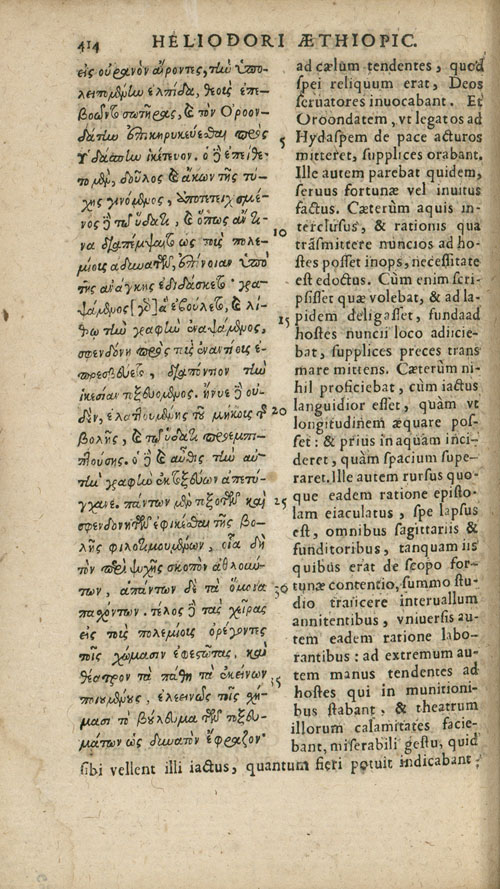 414 HELIODORI ÆTHIOPIC.
εἰς οὐρανὸν αἴροντες, τὴν ὑπο-
λειπομένην ἐλπίδα, θεοὺς ἐπε-
βοῶντο σωτῆρας, καὶ τὸν Ὀροον-
δάτην ἐπικηρυκεύεσθαι πρὸς
Ὑδάσπην ἱκέτευον. ὁ δὲ ἐπείθε-
το μὲν, δοῦλος καὶ ἄκων τῆς τύ-
χης γινόμενος, ἀποτετειχισμέ-
νος δὲ τῷ ὕδατι, καὶ ὅπως ἄν τι-
να διαπέμψαιτο ὡς τοὺς πολε-
μίους ἀδυνατῶν, ἐπίνοιαν ὑπὸ
τῆς ἀνάγκης ἐδιδάσκετο· γρα-
ψάμενος [γὸ] ἃ ἐβούλετο, καὶ λί-
θῳ τὴν γραφὴν ἐναψάμενος,
σφενδόνῃ πρὸς τοὺς ἐναντίους ἐ-
πρεσβεύετο, διαπόντιον τὴν
ἱκεσίαν τοξευόμενος. ἤνυε δὲ οὐ-
δὲν, ἐλαττουμένης τοῦ μήκους τῆς
βολῆς, καὶ τῷ ὕδατι προεμπι-
πτούσης. ὁ δὲ καὶ αὖθις τὴν αὐ-
τὴν γραφὴν ἐκτοξεύων ἀπετύ-
γχανε. πάντων μὲν τοξοτῶν καὶ
σφενδονητῶν ἐφικέσθαι τῆς βο-
λῆς φιλοτιμουμένων, οἷα δὴ
τὸν περὶ ψυχῆς σκοπὸν ἀθλούν-
των, ἁπάντων δὲ τὰ ὅμοια
πασχόντων. τέλος δὲ τὰς χεῖρας
εἰς τοὺς πολεμίους ὀρέγοντες
τοῖς χώμασιν ἐφεστῶτας, καὶ
θέατρον τὰ πάθη τὰ ἐκείνων
ποιουμένους, ἐλεεινῶς τοῖς σχή-
μασι τὸ βούλημα τῶν τοξευ-
μάτων ὡς δυνατὸν ἔφραζον·
5
10
15
20
25
30
35
ad cælum tendentes, quod
spei reliquum erat, Deos
seruatores inuocabant. Et
Oroondatem, vt legatos ad
Hydaspem de pace acturos
mitteret, supplices orabant.
Ille autem parebat quidem,
seruus fortunæ vel inuitus
factus. Cæterùm aquis in-
terclusus, & rationis qua
trãsmittere nuncios ad ho-
stes posset inops, necessitate
est edoctus. Cùm enim scri-
psisset quæ volebat, & ad la-
pidem deligasset, funda ad
hostes nuncii loco adiicie-
bat, supplices preces trans
mare mittens. Cæterùm ni-
hil proficiebat, cùm iactus
languidior esset, quàm vt
longitudinem æquare pos-
set: & prius in aquam inci-
deret, quàm spacium supe-
raret. Ille autem rursus quo-
que eadem ratione episto-
lam eiaculatus, spe lapsus
est, omnibus sagittariis &
funditoribus, tanquam iis
quibus erat de scopo for-
tunæ contentio, summo stu-
dio traiicere interuallum
annitentibus, vniuersis au-
tem eadem ratione labo-
rantibus: ad extremum au-
tem manus tendentes ad
hostes qui in munitioni-
bus stabant, & theatrum
illorum calamitates facie-
bant, miserabili gestu, quid
sibi vellent illi iactus, quantum fieri potuit indicabant: